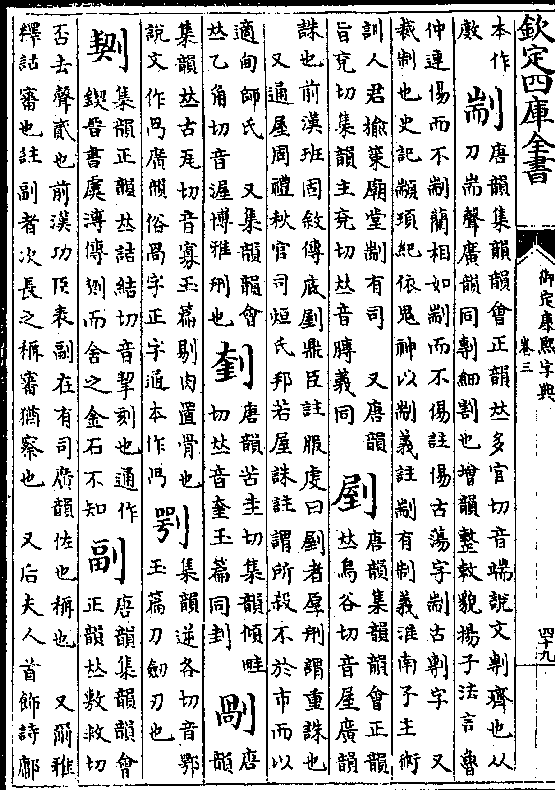 欽定四庫全書
御定康熙字典
卷三
四十九
本作 剬 唐韻集韻韻會正韻𠀤多官切音端說文㔊齊也从
刀耑聲廣韻同剸細割也增韻整敕貌揚子法言魯
仲連傷而不剬藺相如剬而不傷註傷古蕩字剬古剸字 又
裁制也史記顓頊紀依鬼神以剬義註剬有制義淮南子主術
訓人君揄策廟堂剬有司 又唐韻
旨兗切集韻主兗切𠀤音膞義同
剭 唐韻集韻韻會正韻
𠀤烏谷切音屋廣韻
誅也前漢班固敘傳底剭鼎臣註服虔曰剭者厚刑謂重誅也
又通屋周禮秋官司烜氏邦若屋誅註謂所殺不於市而以
適甸師氏 又集韻韻會
𠀤乙角切音渥博雅刑也
唐韻苦圭切集韻傾畦
切𠀤音奎玉篇同刲
剮 唐
韻
集韻𠀤古瓦切音寡玉篇剔肉置骨也
說文作冎廣韻俗咼字正字通本作冎
㓵 集韻逆各切音鄂
玉篇刀劒刃也
㓶 集韻正韻𠀤詰結切音挈刻也通作
鍥晉書虞溥傳㓶而舍之金石不知
副 唐韻集韻韻會
正韻𠀤敷救切
否去聲貳也前漢功臣表副在有司廣韻佐也稱也 又爾雅
釋詁審也註副者次長之稱審猶察也 又后夫人首飾詩鄘